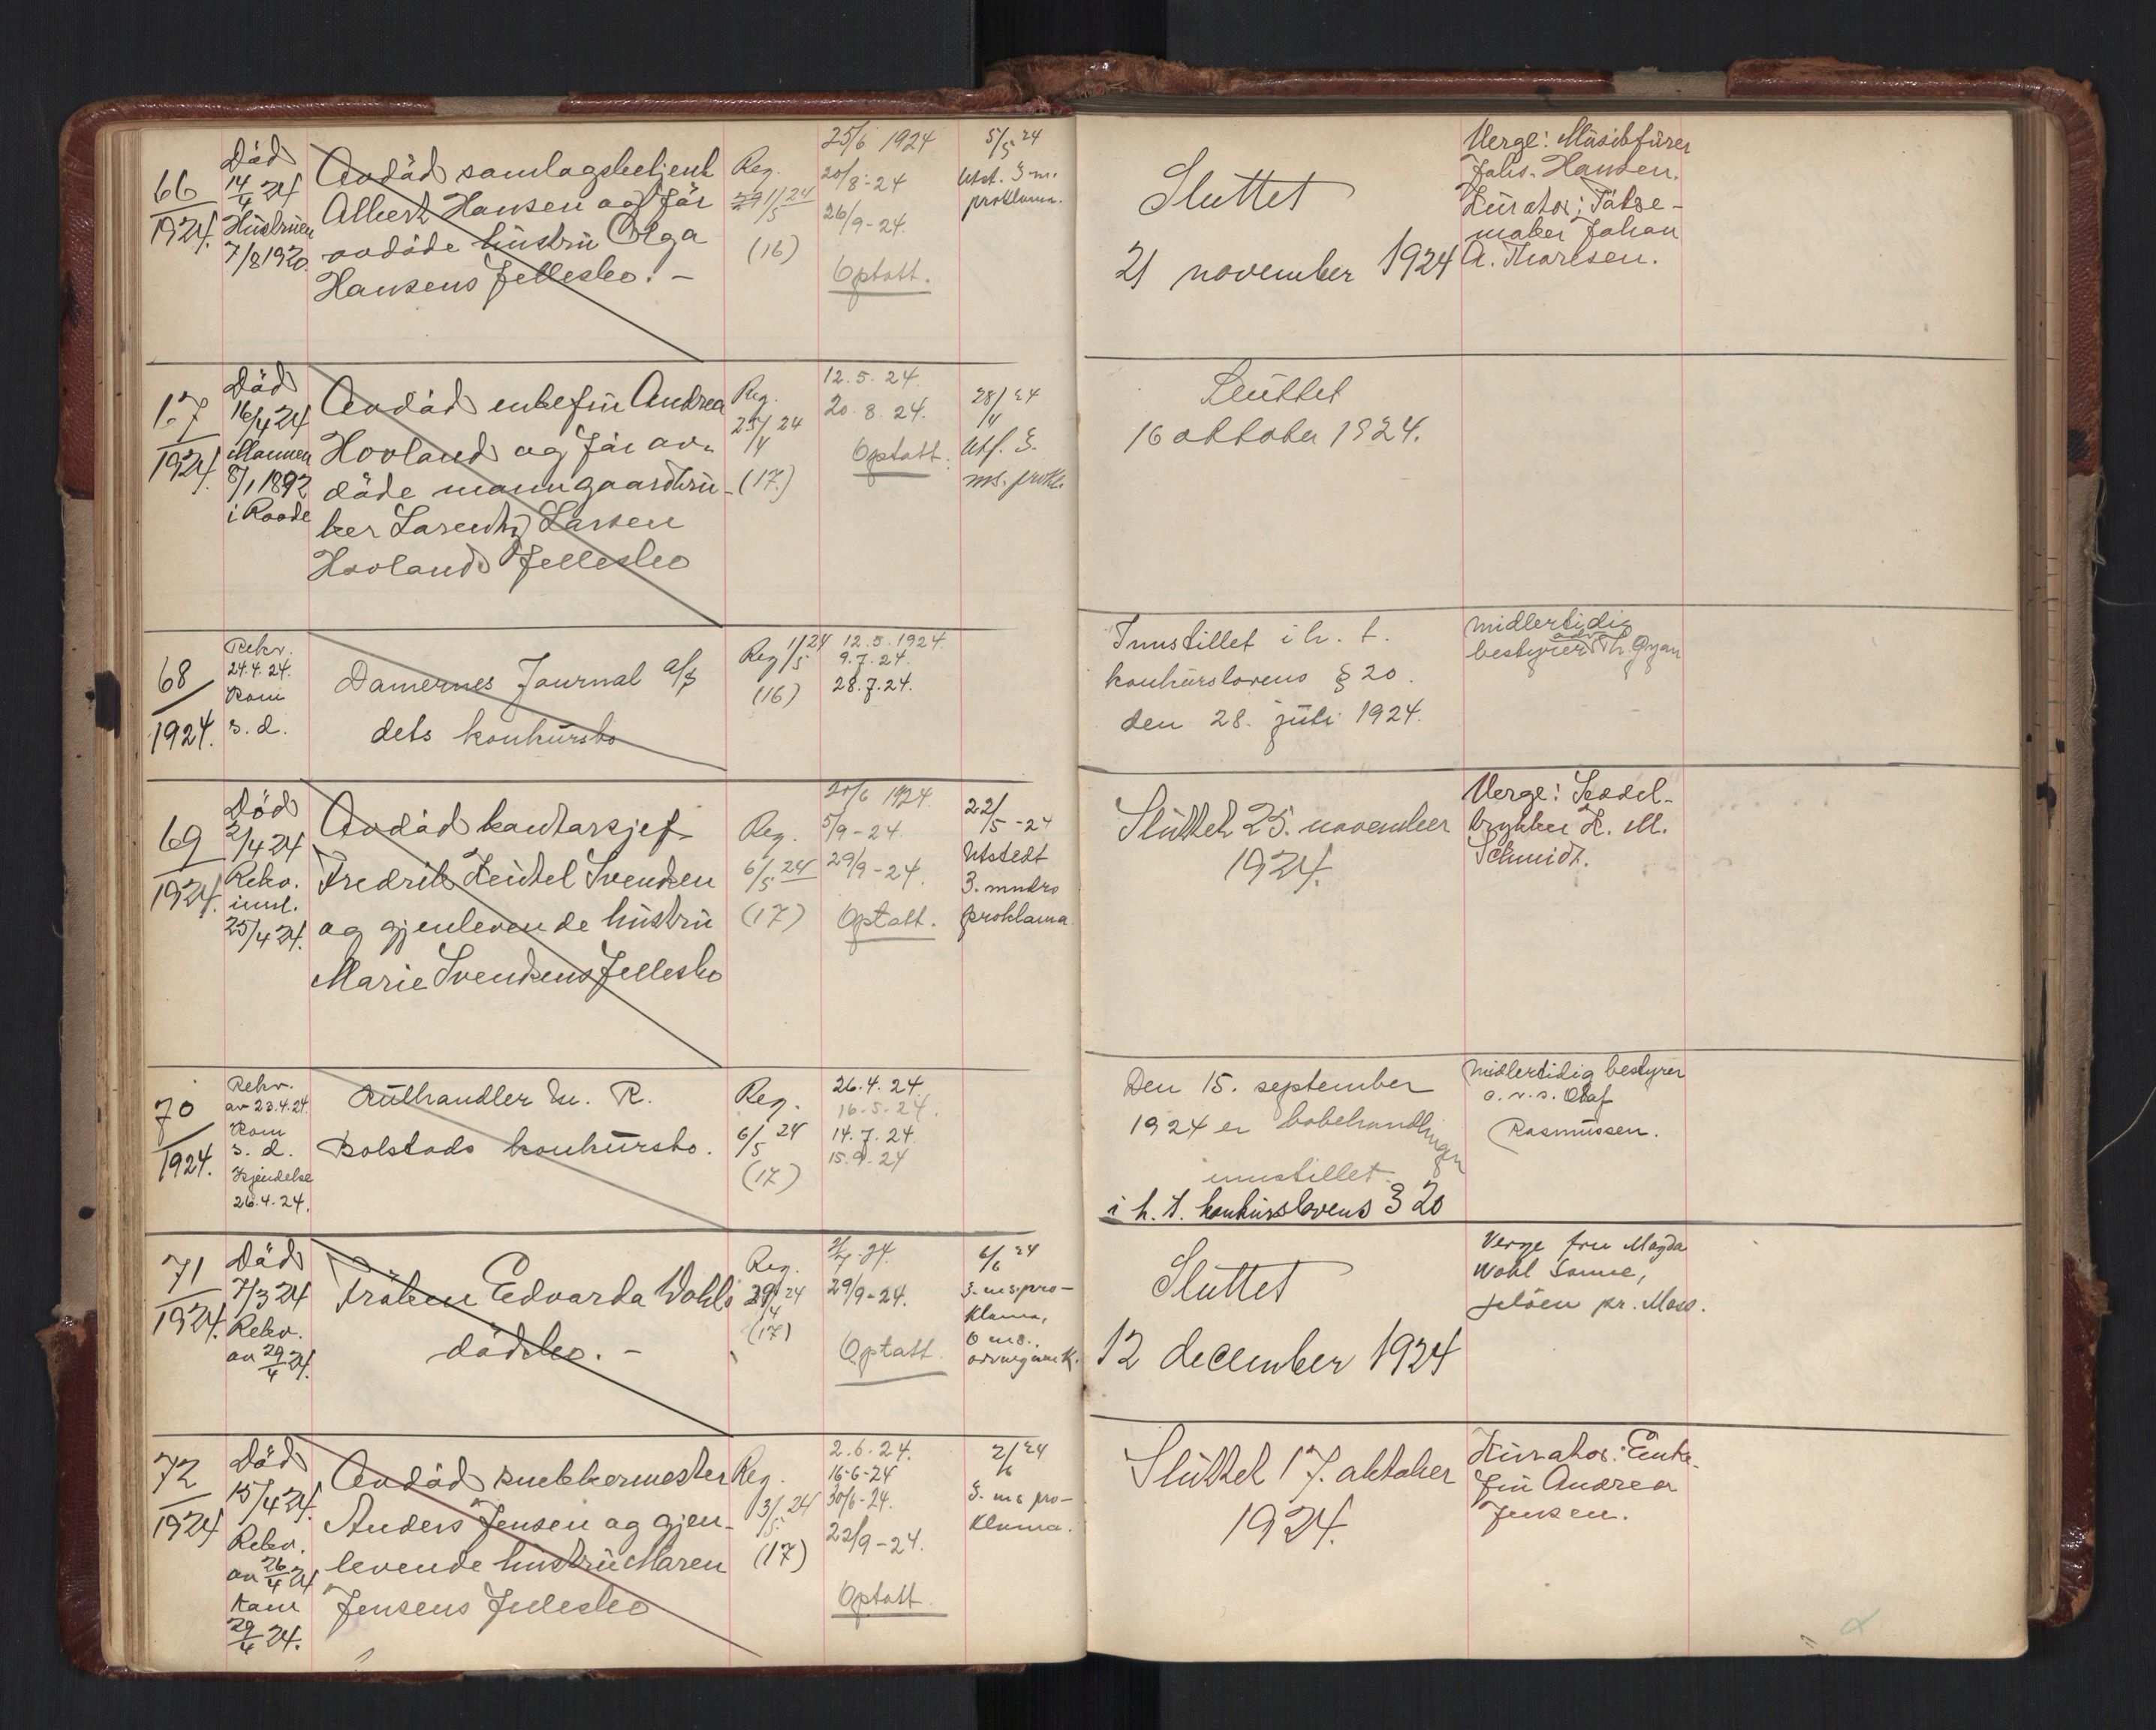 66
1924.
Död
14/4 24
Hüstrüen
7/8 1920.
Avdöd samlagsbetjent
Albert Hansen og för
avdöde hüstrü Olga
Hansens fellesbo. -
Reg.
1/5 24
(16)
25/6 1924
20/8-24
26/9-24.
Optatt.
5/5 24
Utst. 3 m.
proklama.
Sluttet
21 november 1924
Verge: Müsikfürer
Johs. Hansen.
Kürator: Täkse-
maker Johan
A. Thoresen.
67
1924.
Död
16/4 24
Mannen
8/1 1892
i Raade
Avdöd enkefrü Andrea
Hovland og för av-
döde mann gaardbrü-
ker Larentz Larsen
Hovlands fellesbo
Reg.
25/4 24
(17.)
12.5.24.
20.8.24.
Optatt.
28/4 24
Utf. 3.
ms. prokl.
Slüttet
16 oktober 1924.
68
1924.
Rekv.
24.4.24.
Kom
s.d.
Damernes Journal a/s
dets konkürsbo
Reg 1/5 24
(16)
12.5.1924.
9.7.24.
28.7.24.
Innstillet i h. t.
konkürslovens § 20.
den 28. jüli 1924.
midlertidig
bestyrer adv. Th. Gran
69
1924.
Död
2/4 24
Rekv.
innl.
25/4 24.
Avdöd kontorsjef
Fredrik Zeidel Svendsen
og gjenlevende hüstrü
Marie Svendsens fellesbo
Reg.
6/5 24
(17)
20/6 1924.
5/9-24.
29/9-24.
Optatt.
22/5-24
Utstedt
3. mndrs
proklama
Slüttet 25. november
1924.
Verge: Bodel-
trykker K. M.
Schmidt.
70
1924.
Rekv.
av 23.4.24.
Kom
s.d.
Kjendelse
26.4.24.
Külhandler M. R.
Bolstads konkürsbo.
Reg.
6/5 24
(17)
26.4.24.
16.5.24.
14.7.24.
15.9.24
Den 15. september
1924 er bobehandlingen
innstillet
i h. t. konkürslovens § 20
Midlertidig bestyrer
o.r.s. Olaf
Rasmüssen.
71
1924.
Död
7/3 24
Rekv.
av 29/4 24.
Fröken Edvarda Wohls
dödsbo. -
Reg.
29/4 24
(17)
2/7-24.
29/9-24.
Optatt.
6/6 24
3. ms pro-
klama,
6 ms.
arvinginnk.
Sluttet
12 december 1924
Verge fru Magda
Wohl Sonne,
Jelöen pr. Moss.
72
1924
Död
15/4 24.
Rekv.
av 26/4 24
Kom
29/4 24.
Avdöd snekkermester
Anders Jensen og gjen-
levende hüstrü Maren
Jensens fellesbo
Reg.
3/5 24
(17)
2.6.24.
16-6-24
30/6-24.
22/9-24.
Optatt.
2/6 24
3. ms pro-
klama.
Slüttet 17. oktober
1924.
Kürator: Enke-
frü Andrea
Jensen.